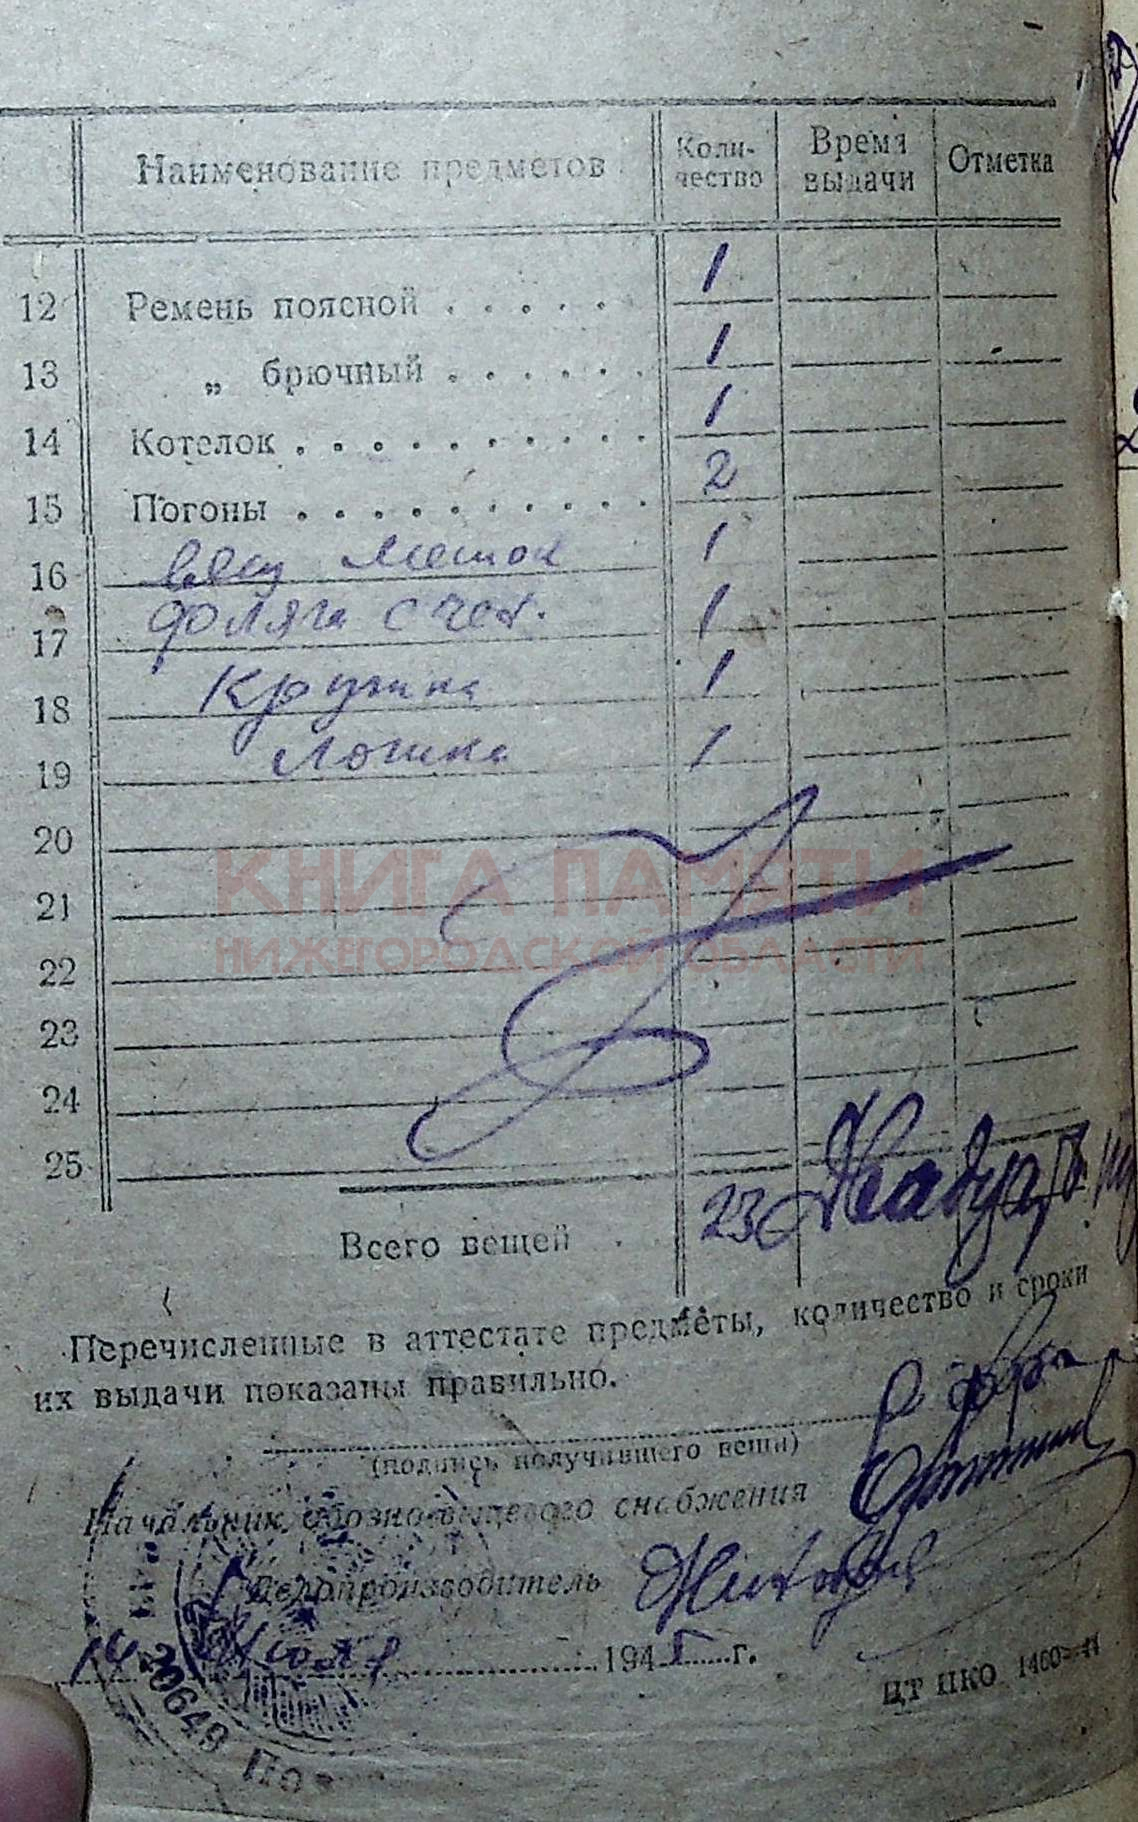 Наименование предметов Коли-чество Время выдачи Отметка
12 Ремень поясной . . . . . 1
13 „ брючный . . . . . . 1
14 Котелок . . . . . . . . . . 1
15 Погоны . . . . . . . . . . 2
16 вещ мешок 1
17 фляга с чех. 1
18 Кружка 1
19 Ложка 1
20
КНИГА ПАМЯТИ
21
НИЖЕГОРОДСКОЙ ОБЛАСТИ
22
23
24
25
Всего вещей . 23
Перечисленные в аттестате предметы, количество и сроки
их выдачи показаны правильно.
(подпись получившего вещи)
Начальник обозно-вещевого снабжения
Делопроизводитель
14 194 5 г.
20649 Пол
ЦТ НКО 1460—44